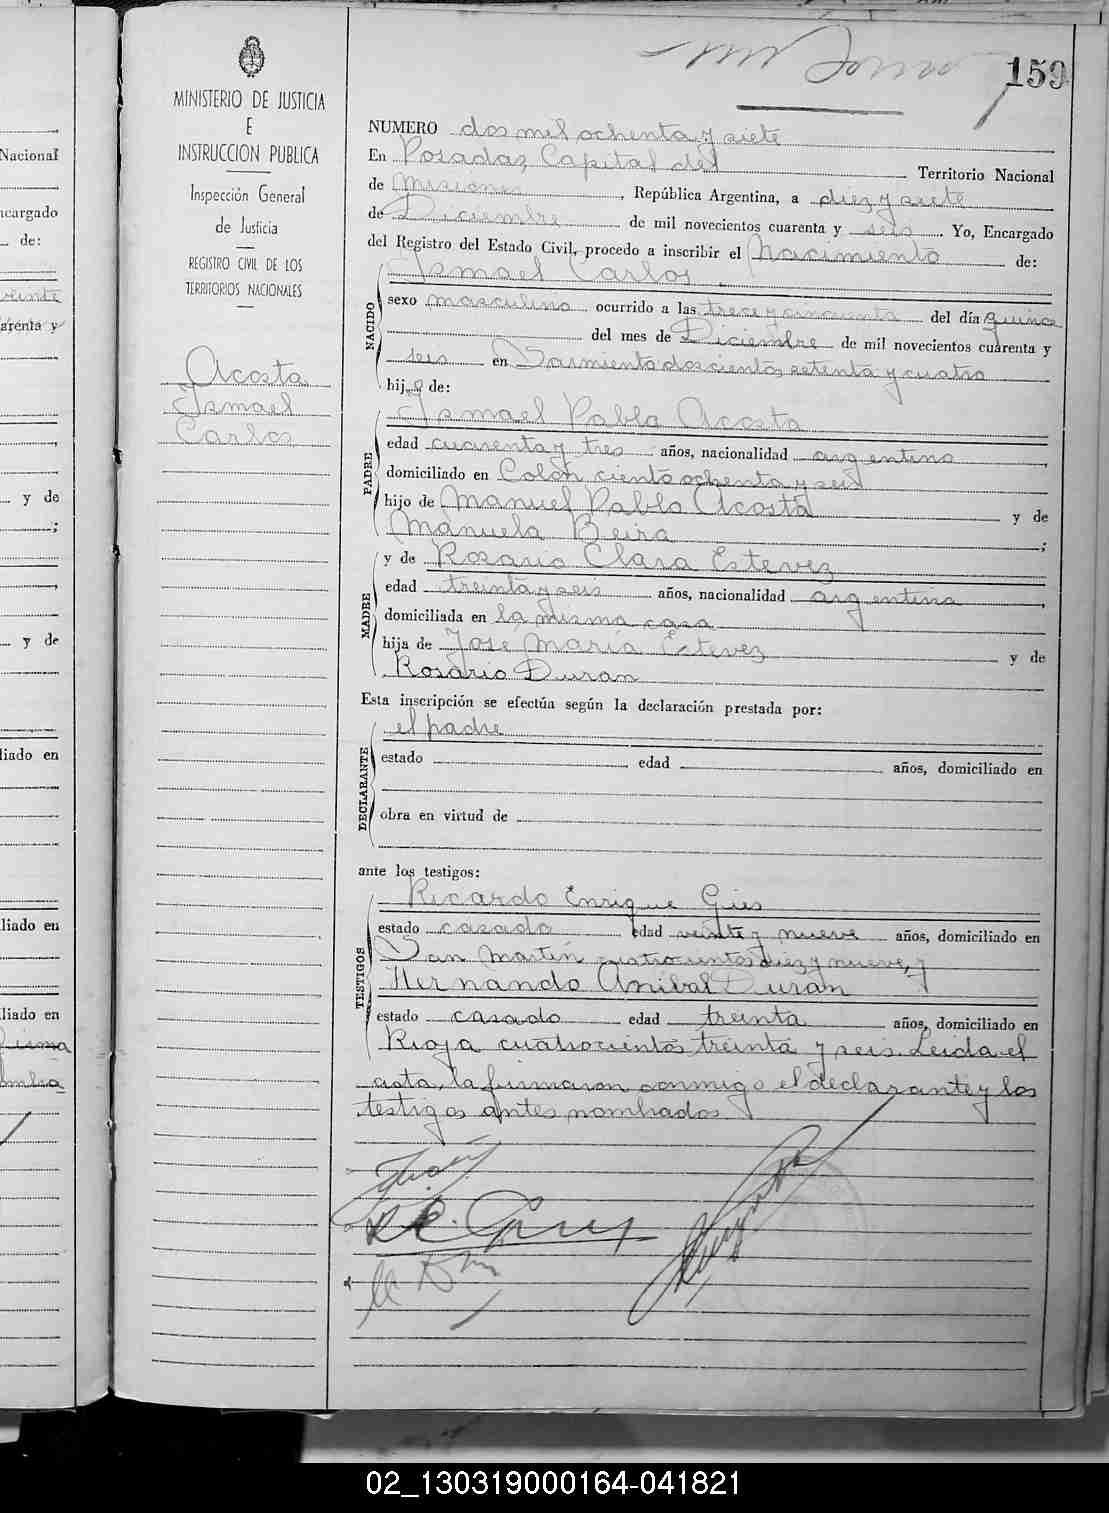 159
MINISTERIO DE JUSTICIA
E
INSTRUCCION PUBLICA
Inspección General
de Justicia
REGISTRO CIVIL DE LOS
TERRITORIOS NACIONALES
Acosta
Ismael
Carlos
NUMERO dos mil ochenta y siete
En Posadas, Capital del Territorio Nacional
de Misiones, República Argentina, a diez y siete
de Diciembre de mil novecientos cuarenta y seis. Yo, Encargado
del Registro del Estado Civil, procedo a inscribir el Nacimiento de:
Ismael Carlos
NACIDO
sexo masculino ocurrido a las trece y cincuenta del día quince
del mes de Diciembre de mil novecientos cuarenta y
seis en Sarmiento doscientos setenta y cuatro
hijo de:
PADRE
Ismael Pablo Acosta
edad cuarenta y tres años, nacionalidad argentino,
domiciliado en Colón ciento ochenta y seis
hijo de Manuel Pablo Acosta y de
Manuela Beira;
MADRE
y de Rosario Clara Estevez
edad treinta y seis años, nacionalidad argentina,
domiciliada en la misma casa
hija de José María Estevez y de
Rosario Duran
Esta inscripción se efectúa según la declaración prestada por:
DECLARANTE
el padre
estado edad años, domiciliado en
obra en virtud de
ante los testigos:
TESTIGOS
Ricardo Enrique Gies
estado casado edad veinte y nueve años, domiciliado en
San Martín cuatrocientos diez y nueve, y
Hernando Anibal Duran
estado casado edad treinta años, domiciliado en
Rioja cuatrocientos treinta y seis. Leida el
acta, la firmaron conmigo el declarante y los
testigos antes nombrados.
Nacional
ncargado
de:
veinte
arenta y
y de
;
y de
liado en
liado en
liado en
02_130319000164-041821